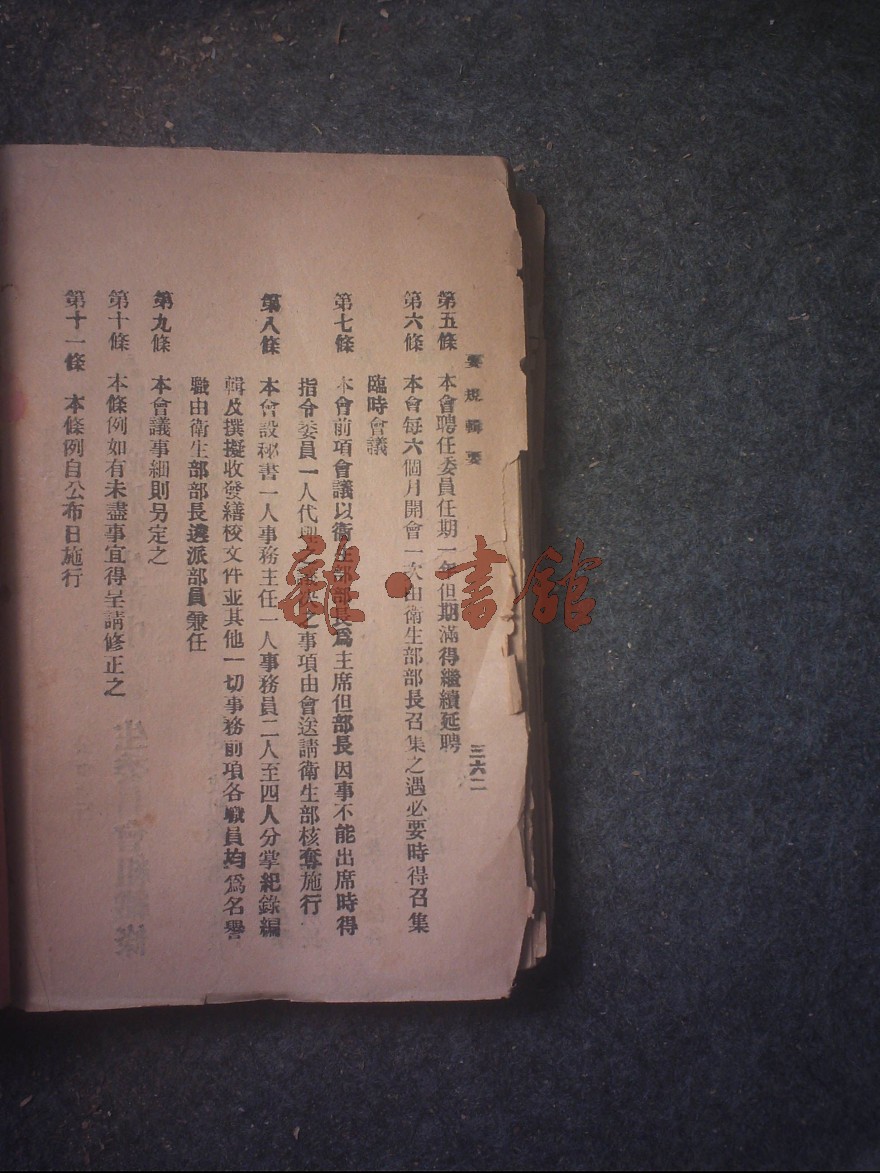 要規輯要
三六二
第五條 本會聘任委員任期一年但期滿得繼續延聘
第六條 本會每六個月開會一次由衛生部部長召集之遇必要時得召集
臨時會議
第七條 本會前項會議以衛生部部長爲主席但部長因事不能出席時得
指令委員一人代理之事項由會送請衛生部核奪施行
第八條 本會設秘書一人事務主任一人事務員二人至四人分掌紀錄編
輯及撰擬收發繕校文件並其他一切事務前項各職員均爲名譽
職由衛生部部長遴派部員兼任
第九條 本會議事細則另定之
第十條 本條例如有未盡事宜得呈請修正之
第十一條 本條例自公布日施行
雜·書館